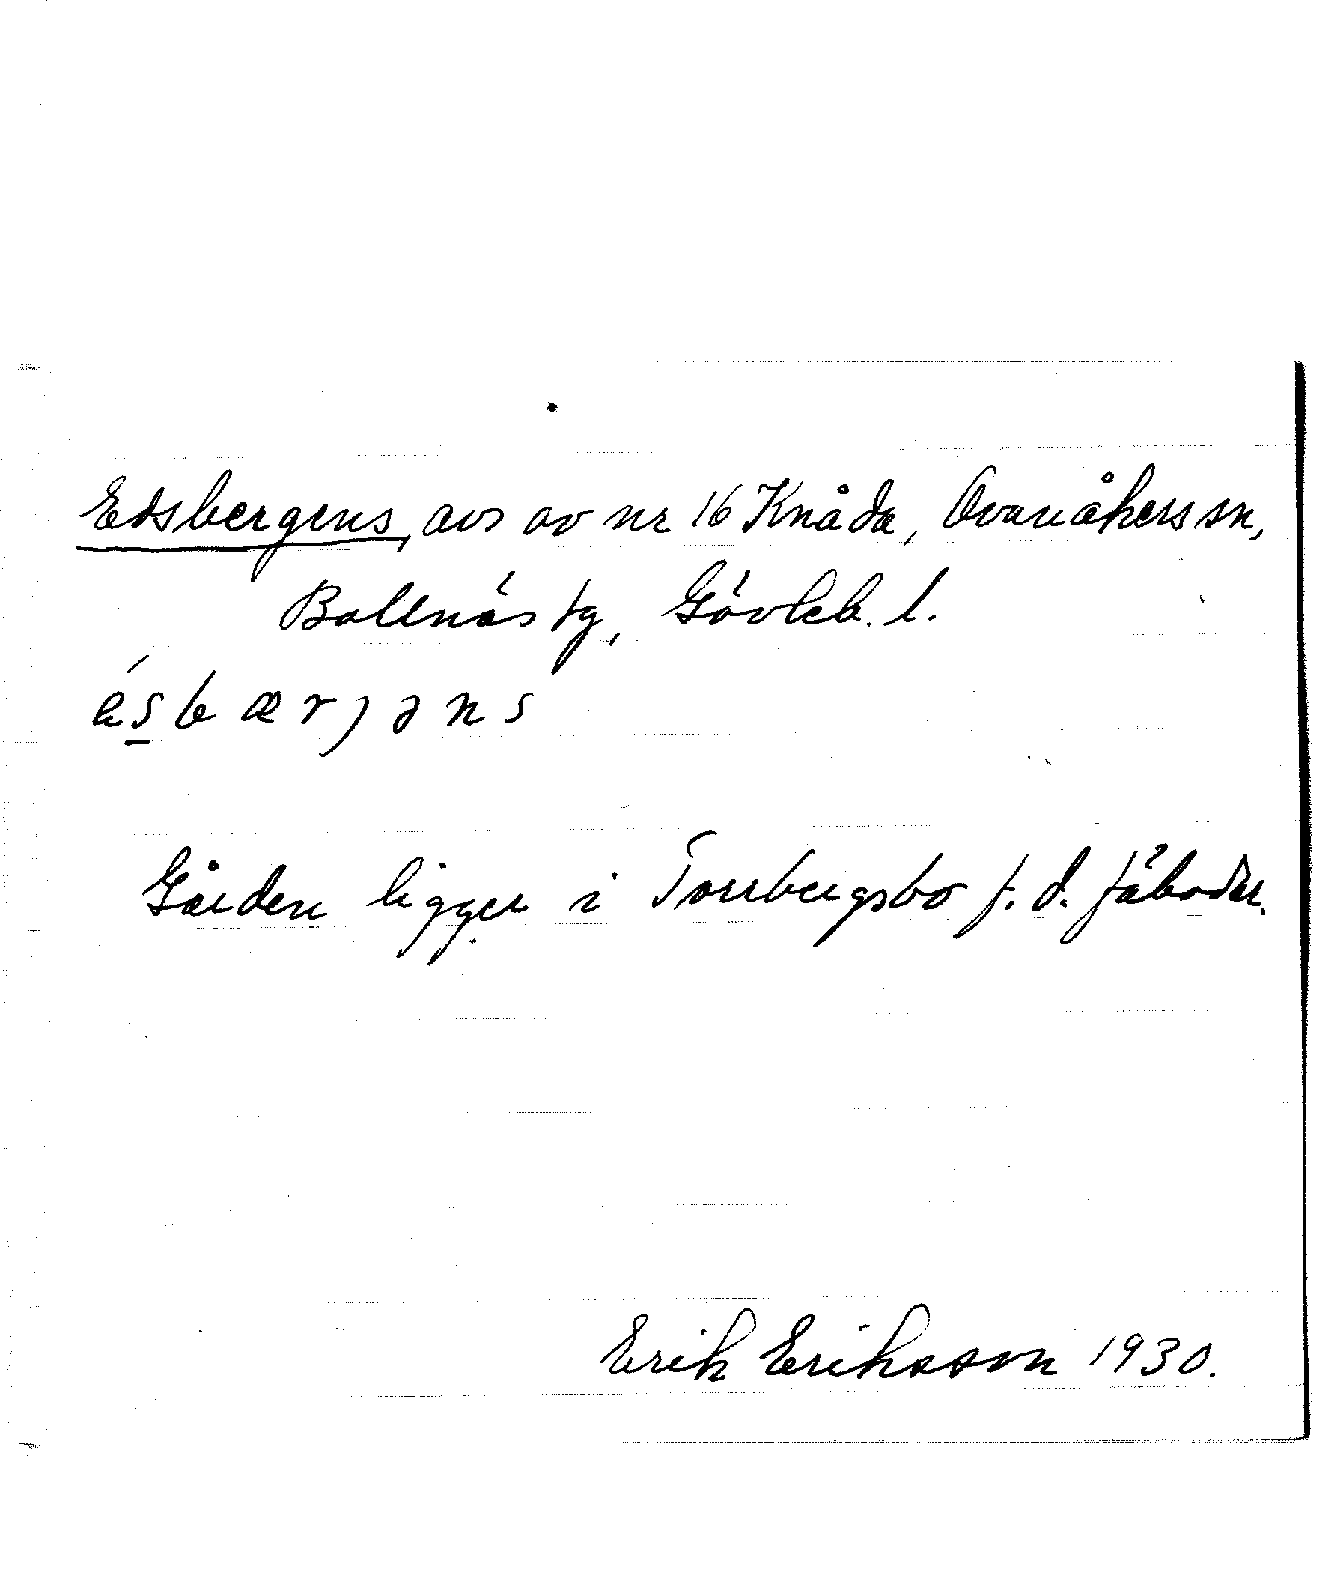 Edsbergens, avs av nr 16 Knåda, Ovanåkers sn,
Bollnäs tg, Gävleb. l.
ésbærjəns
Gården ligger i Torrbergsbo f. d. fäbodar.
Erik Eriksson 1930.